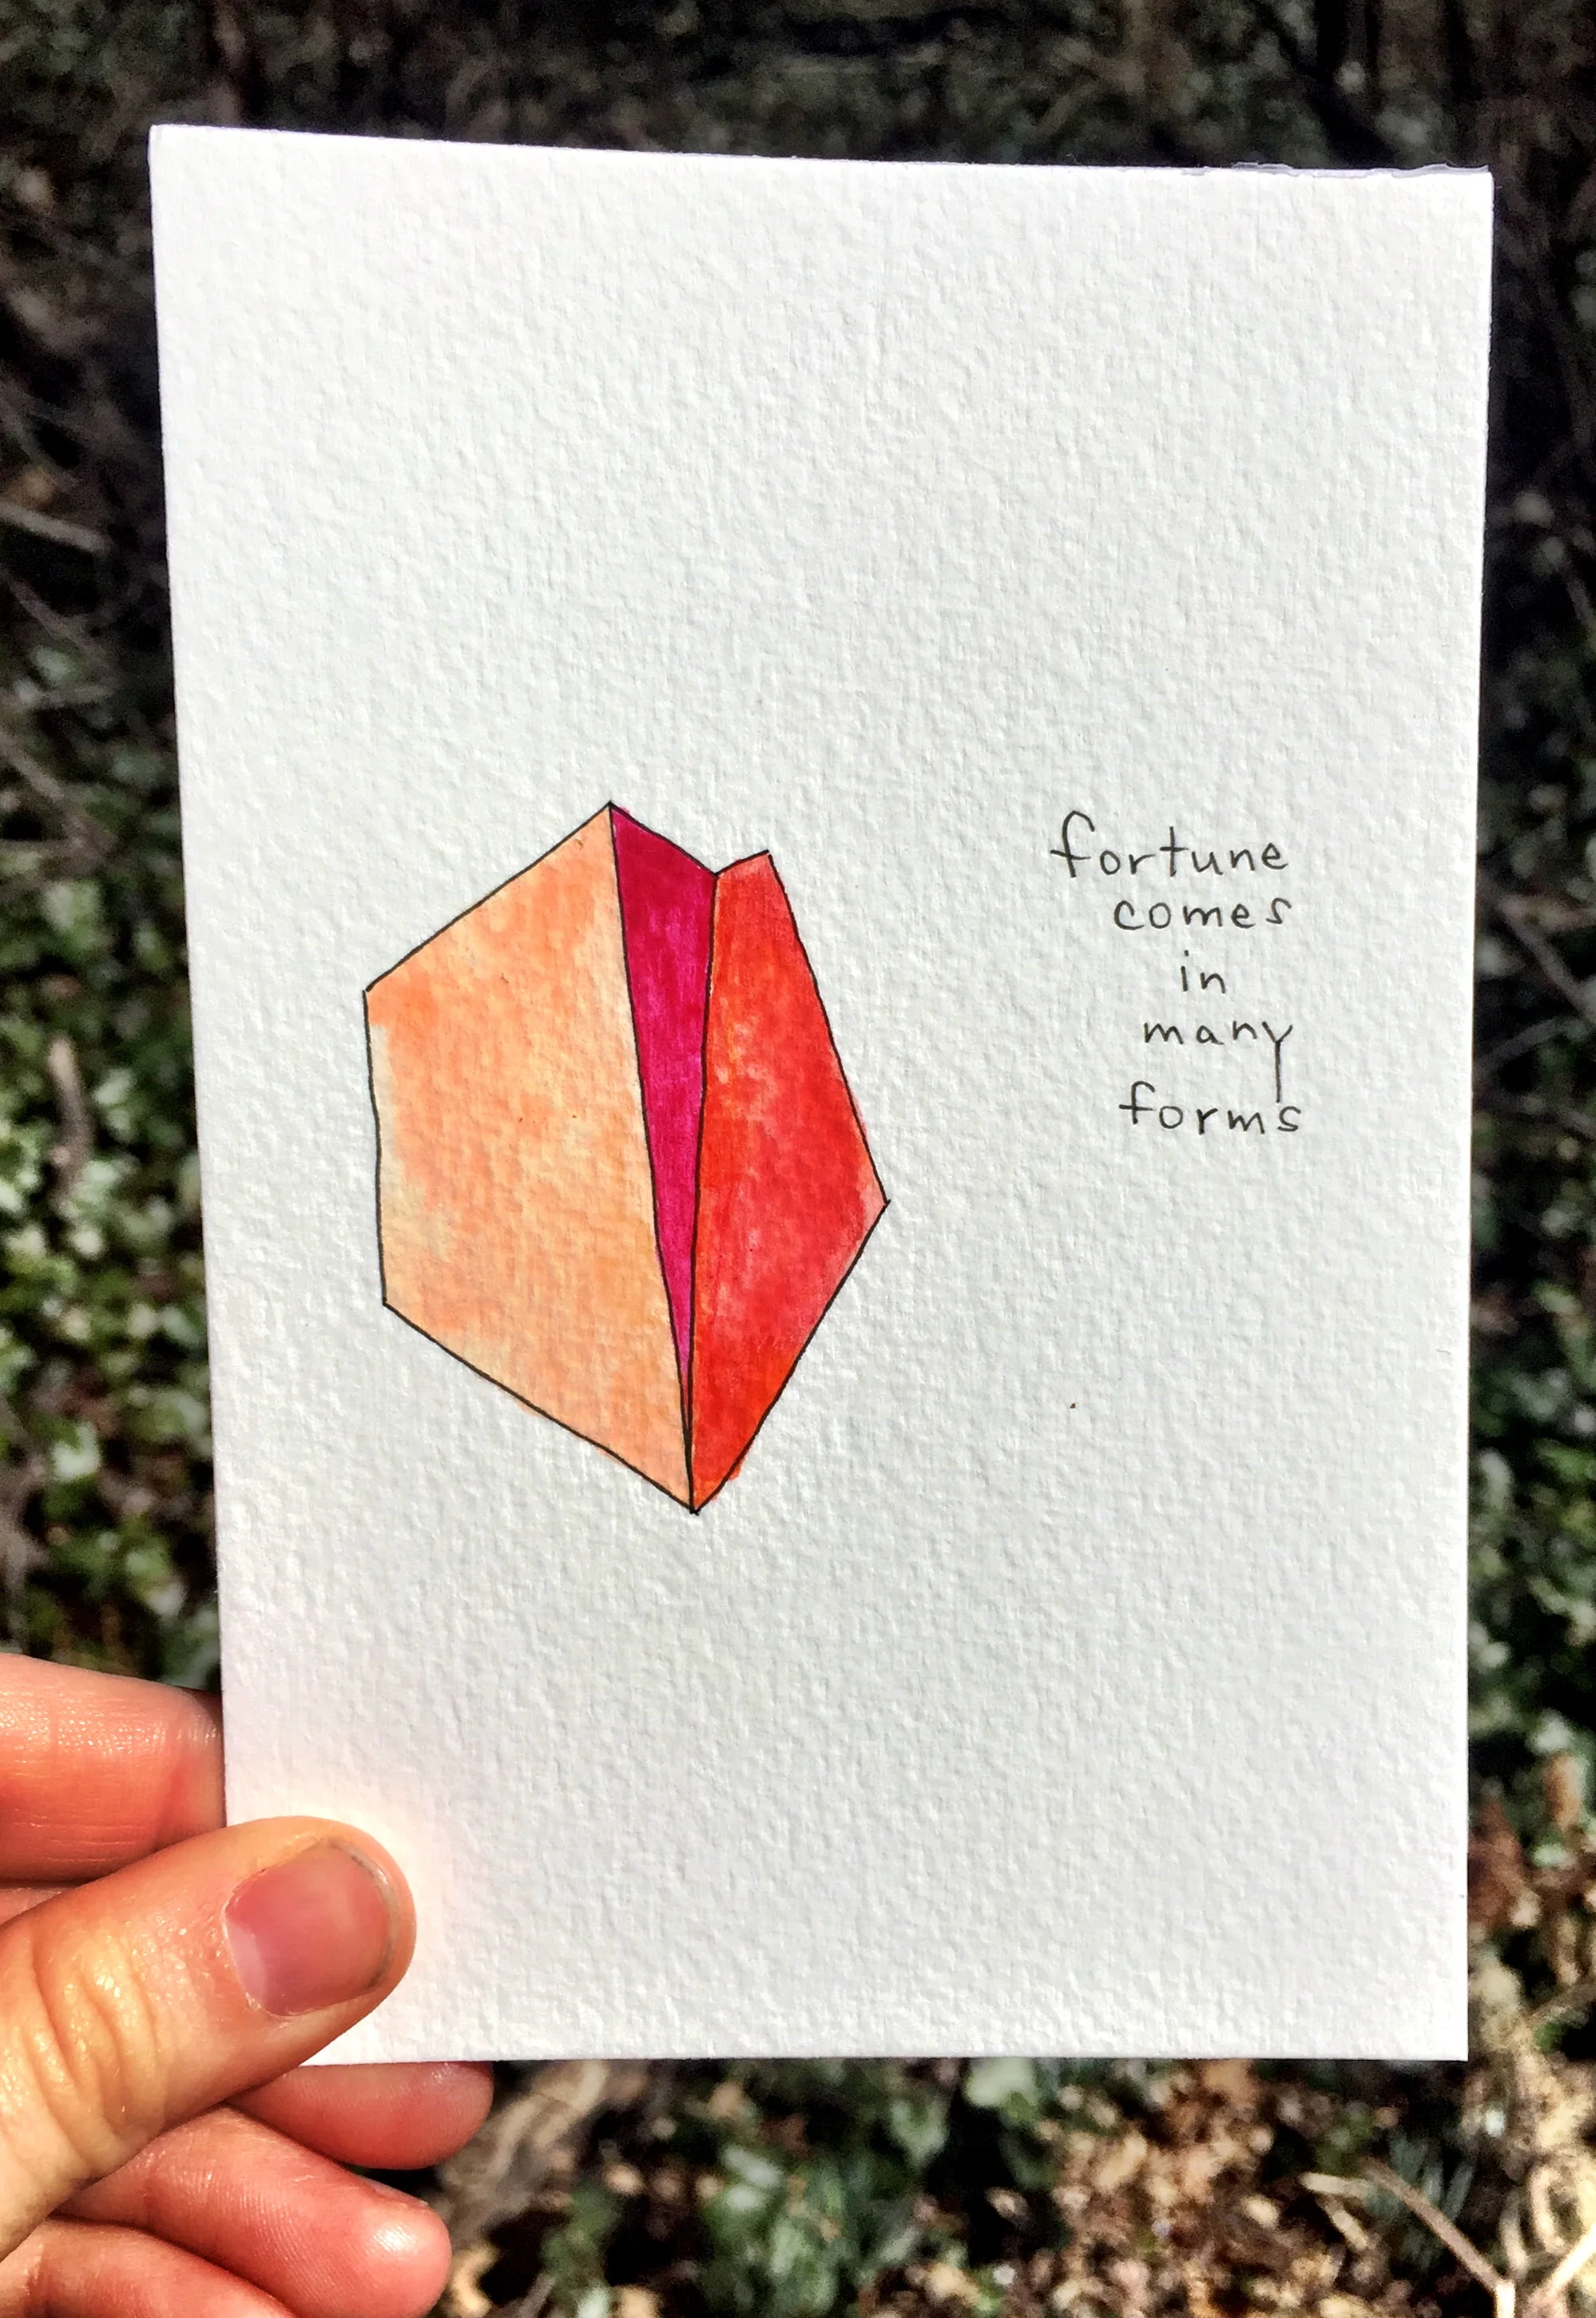 fortune
comes
in
many
forms